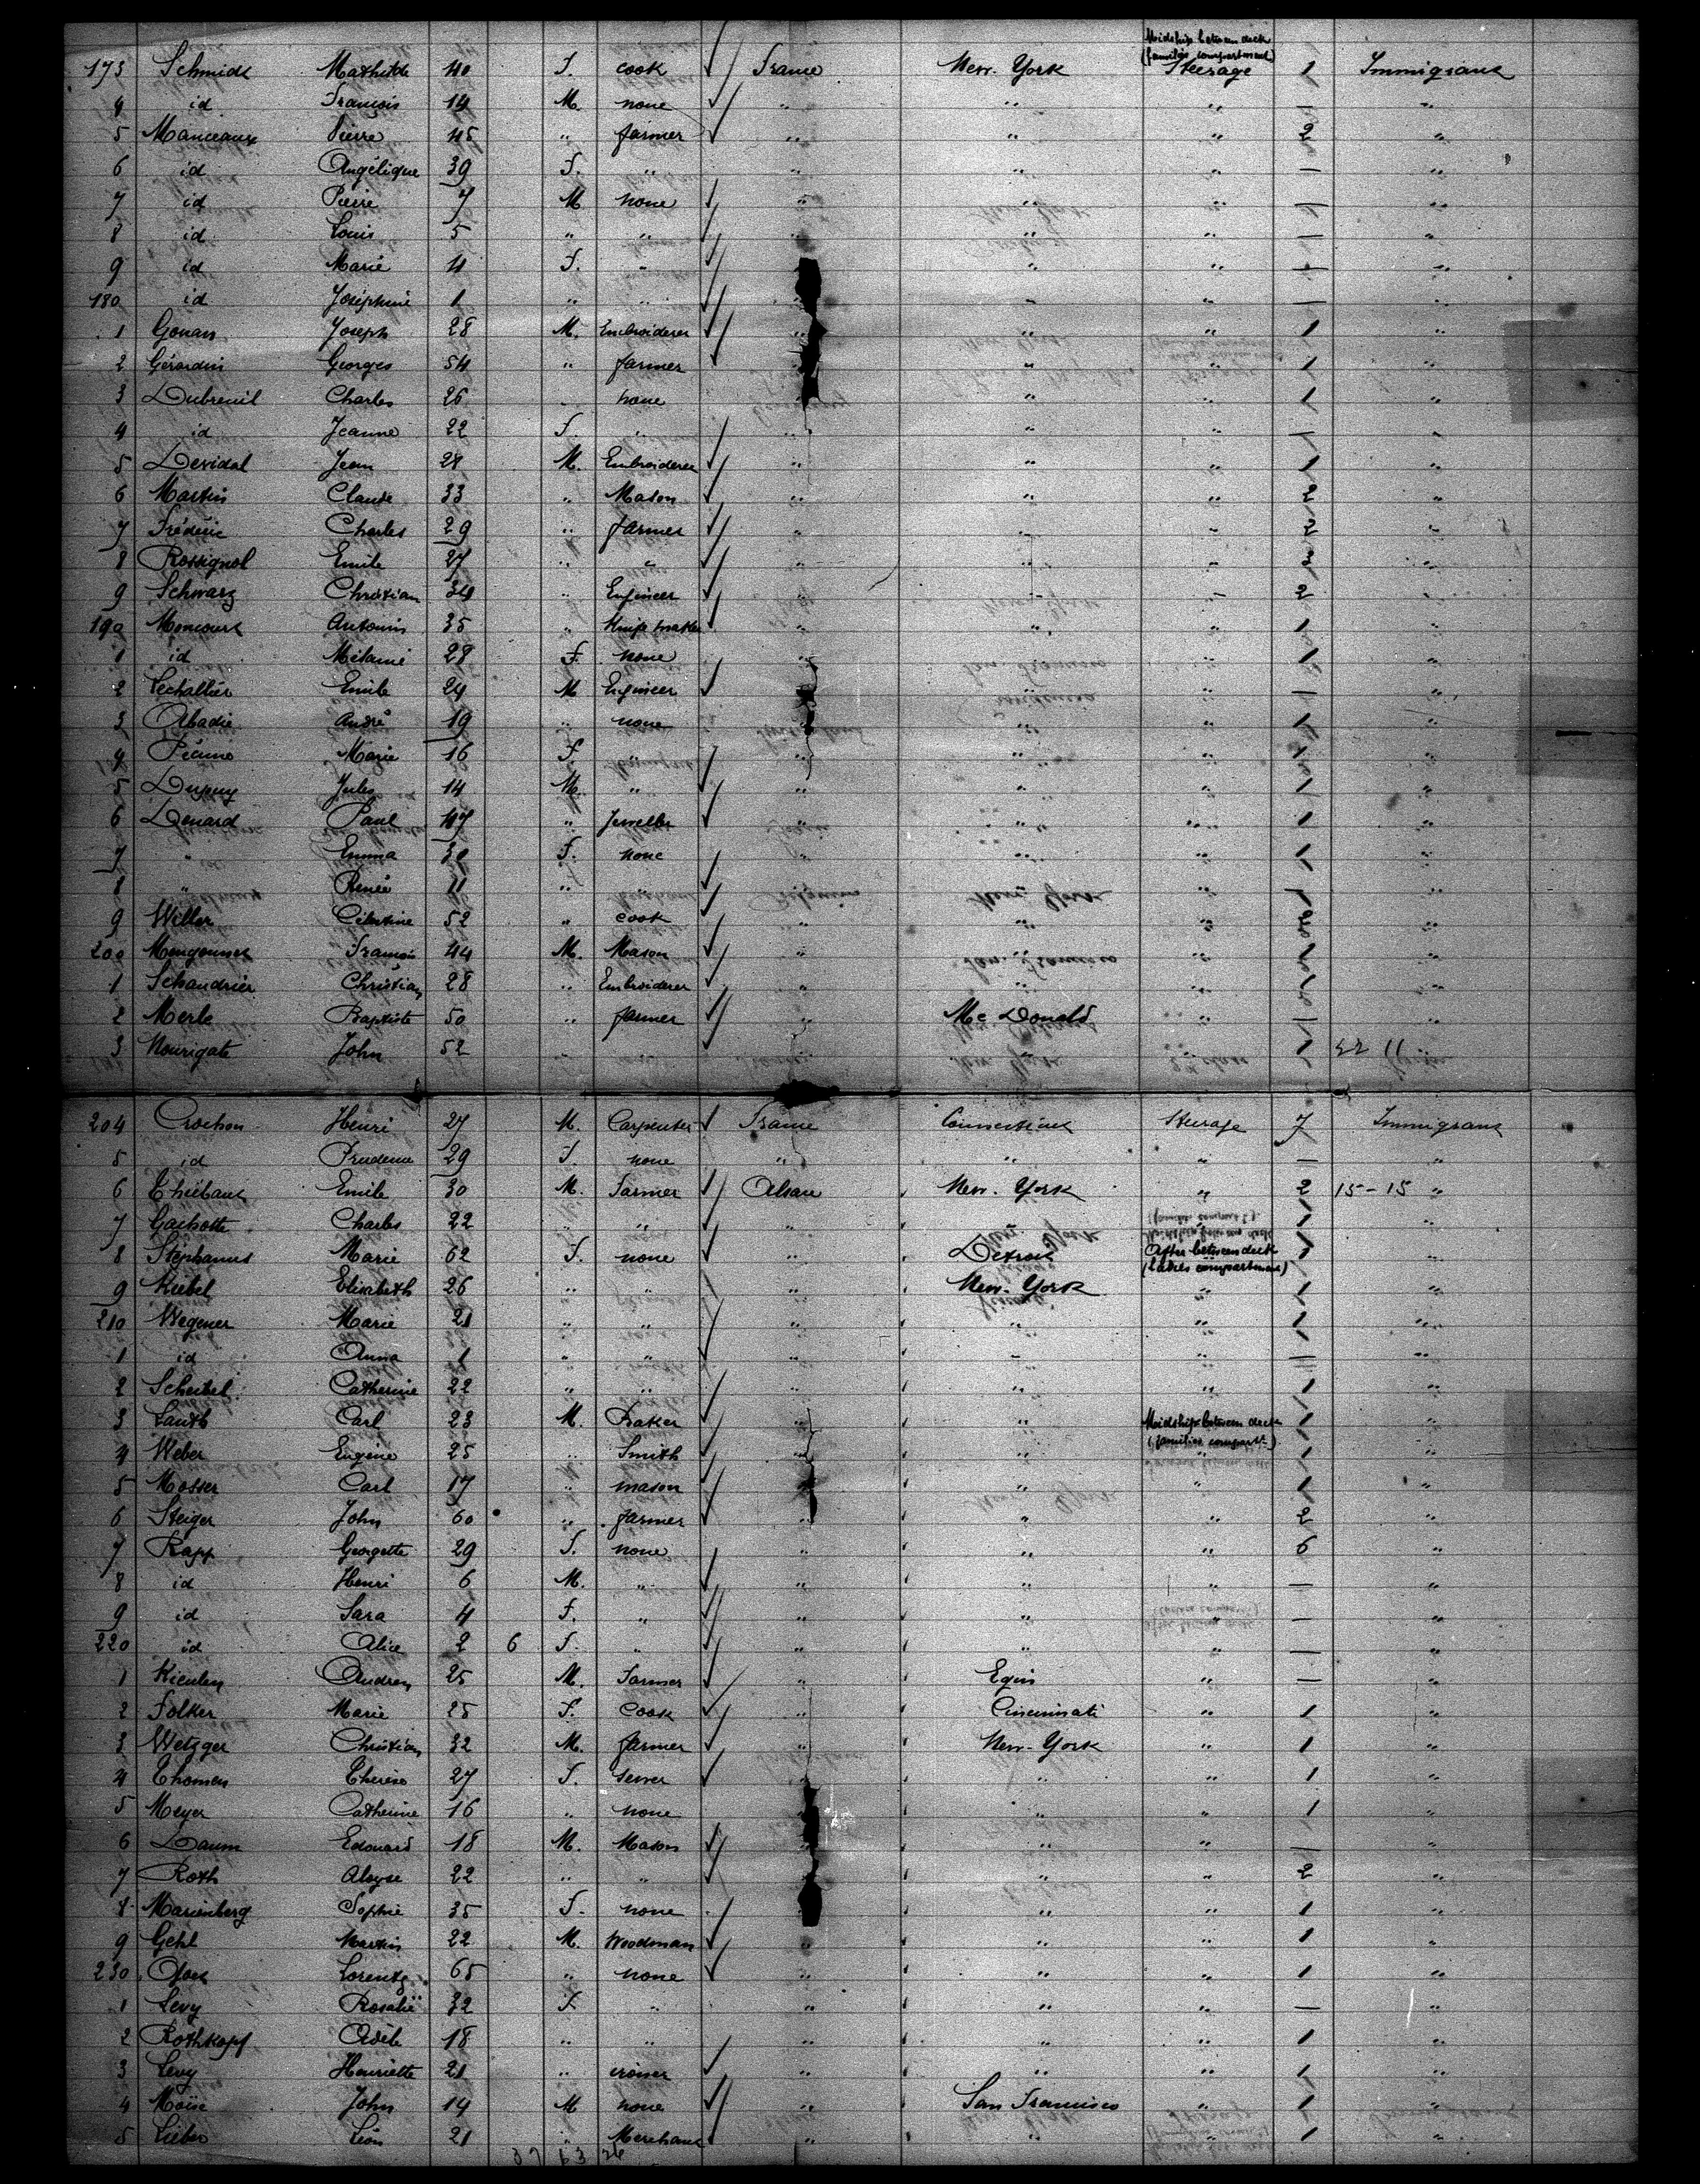 Midship between deck
(families compartment)
173 Schmidt Mathilde 40 F. cook France New-York Steerage 1 Immigrant
4 id François 14 M. none " " " — "
5 Manceaux Pierre 45 " farmer " " " 2 "
6 id Angélique 39 F. " " " " — "
7 id Pierre 7 M none " " " — "
8 id Louis 5 " " " " " — "
9 id Marie 4 F. " " " " — "
180 id Joséphine 1 " " " " " — "
1 Gonan Joseph 28 M. Embroiderer " " " 1 "
2 Gérardin Georges 54 " farmer " " " 1 "
3 Dubreuil Charles 26 " none " " " 1 "
4 id Jeanne 22 F. " " " " — "
5 Devidal Jean 28 M. Embroiderer " " " 1 "
6 Martin Claude 33 " Mason " " " 2 "
7 Frédéric Charles 29 " farmer " " " 2 "
8 Rossignol Emile 27 " " " " " 3 "
9 Schwarz Christian 34 " Engineer " " " 2 "
190 Moncourt Antonin 35 " Knife maker " " " 1 "
1 id Mélanie 28 F. none " " " 1 "
2 Lechallier Emile 24 M Engineer " " " — "
3 Abadie André 19 " none " " " 1 "
4 Marie 16 F. " " " " 1 "
5 Dupuy Jules 14 M. " " " " 1 "
6 Denard Paul 47 " Jeweller " " " 1 "
7 " Emma 30 F. none " " " 1 "
8 " Renée 11 " " " " " 1 "
9 Willer Célestine 52 " cook " " " 2 "
200 François 44 M. Mason " " " 1 "
1 Schaudrier Christian 28 " Embroiderer " " " 1 "
2 Merle Baptiste 50 " farmer " Mc Donald " 1 "
3 Nourigate John 52 " " " " " 1 22 11
204 Crochon Henri 27 M. Carpenter France Connecticut Steerage 7 Immigrant
5 id Prudence 29 F. none " " " — "
6 Thiébaut Emile 30 M. Farmer Alsace New-York " 2 15-15 "
7 Gachotte Charles 22 " " " " " 1 "
8 Stephanus Marie 62 F. none " Detroit After between deck 1 "
(Ladies compartment)
9 Keibel Elisabeth 26 " " " New-York " 1 "
210 Wegener Marie 21 " " " " " 1 "
1 id Anna 1 " " " " " — "
2 Scheibel Catherine 22 " " " " " 1 "
3 Lauth Carl 23 M. Baker " " Midship between deck 1 "
(families compart.)
4 Weber Eugène 25 " Smith " " " 1 "
5 Mosser Carl 17 " mason " " " 1 "
6 Steiger John 60 " farmer " " " 2 "
7 Rapp Georgette 29 F. none " " " 6 "
8 id Henri 6 M. " " " " — "
9 id Sara 4 F. " " " " — "
220 id Alice 2 6 F. " " " " — "
1 Kienlen Andreas 25 M. Farmer " " — "
2 Folker Marie 25 F. Cook " Cincinnati " 1 "
3 Wetzger Christian 32 M. farmer " New-York " 1 "
4 Thomen Thérèse 27 F. sewer " " " 1 "
5 Meyer Catherine 16 " none " " " 1 "
6 Daum Edouard 18 M. Mason " " " — "
7 Roth Aloyse 22 " " " " " 2 "
8 Marienberg Sophie 35 F. none " " " 1 "
9 Gehl Martin 22 M. Woodman " " " 1 "
230 Lorentz 65 " none " " " 1 "
1 Levy Rosalie 32 F. " " " " — "
2 Rothkopf Adèle 18 " " " " " 1 "
3 Levy Henriette 21 " ironer " " " 1 "
4 Moïse John 14 M none " San Francisco " 1 "
5 Lieber Léon 21 " Merchant " " " 1 "